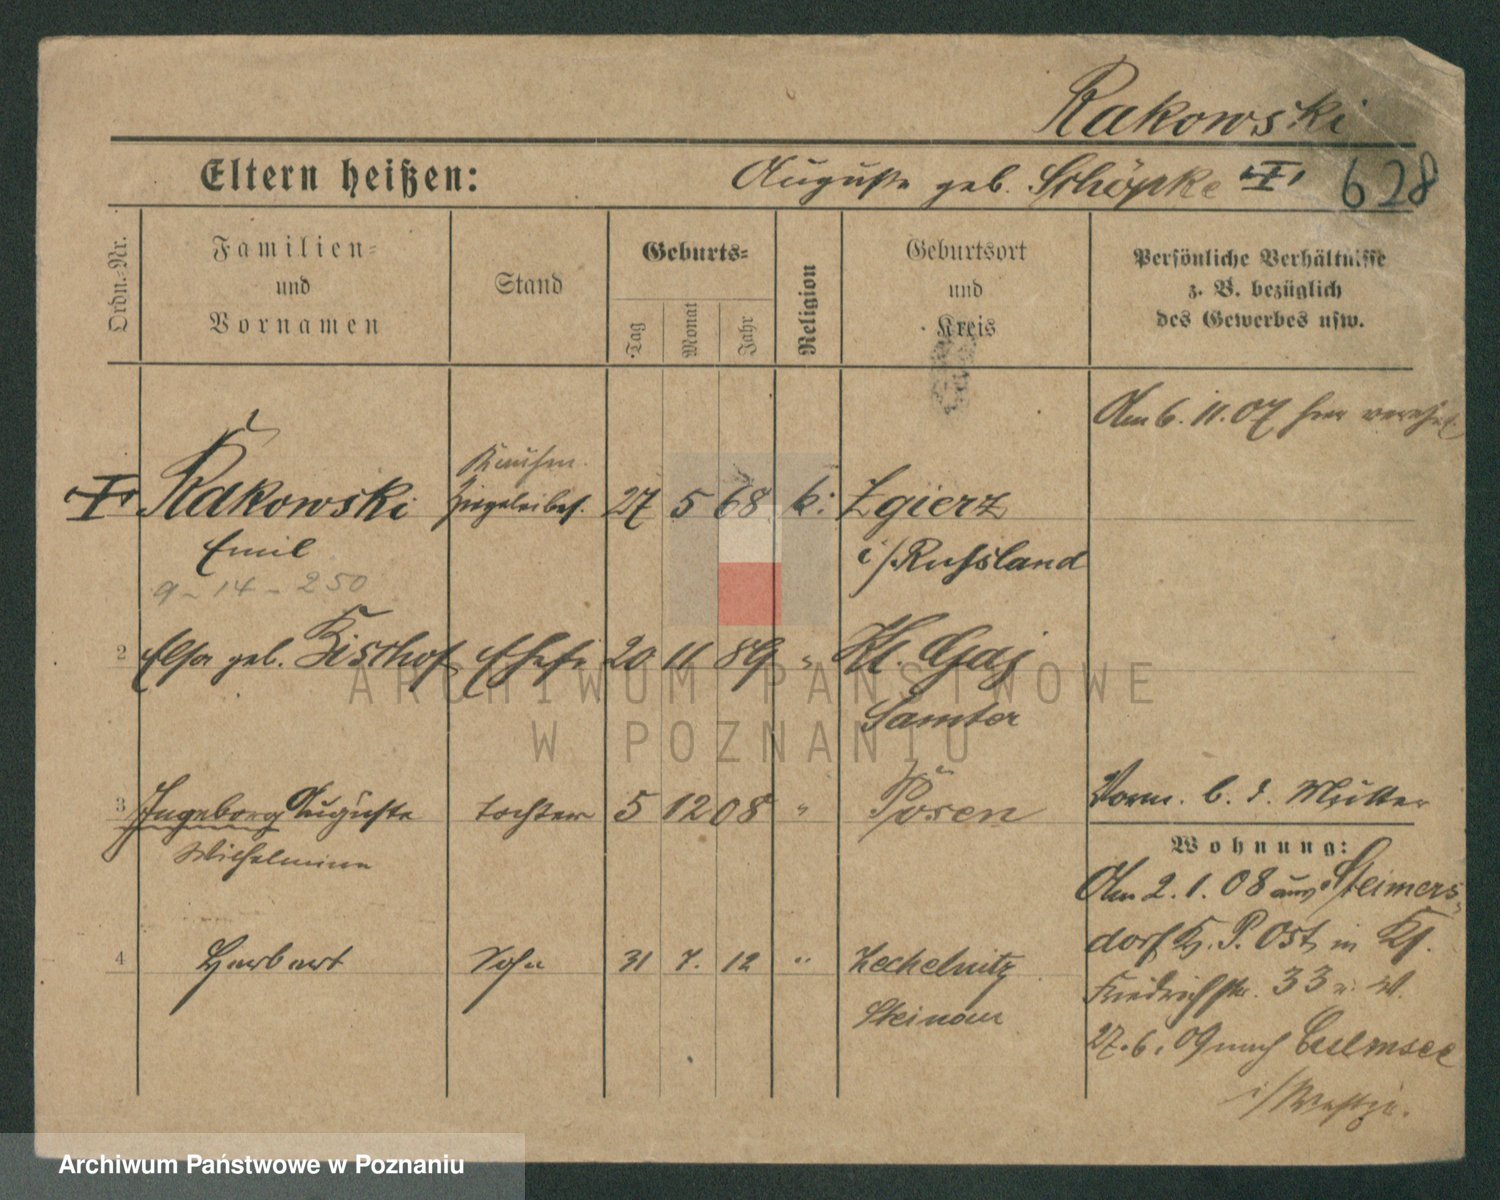 Rakowski
Eltern heißen: Auguste geb. Schöpke I 628
Ordn.-Nr.
Familien-
und
Vornamen
Stand
Geburts-
Tag
Monat
Jahr
Religion
Geburtsort
und
Kreis
Persönliche Verhältnisse
z. B. bezüglich
des Gewerbes usw.
Am 6. 11. 07 hier
I Rakowski 27 5 68 k: Zgierz
Emil i/Russland
9-14-250
2 Elsa geb. Bischof Ehefr 20 11 89 " Kl. Gaj
Samter
3 Ingeborg Auguste tochter 5 12 08 " Posen
Wilhelmine
Vorm. b. d. Mutter
Wohnung:
4 Herbert Sohn 31 7. 12 " Zechelnitz
Steinau
Am 2. 1. 08 aus Steimers-
dorf K. P. Ost, in
Friedrichstr. 33
27. 6. 09 nach Culmsee
i/Westpr.
ARCHIWUM PAŃSTWOWE
W POZNANIU
Archiwum Państwowe w Poznaniu